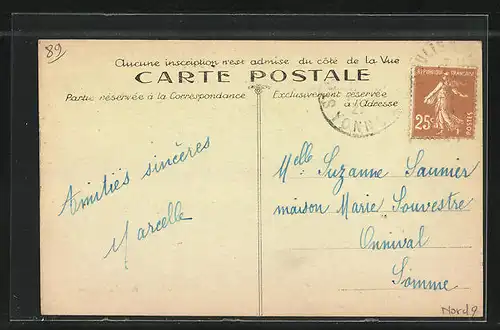 89
Aucune inscription n'est admise du côté de la Vue
CARTE POSTALE
Partie réservée à la Correspondance
Exclusivement réservée
à l'Adresse
YONNE
REPUBLIQUE FRANÇAISE
25c
POSTES
Amitiés sincères
Marcelle
Melle Suzanne Saunier
maison Marie Souvestre
Onnival
Somme
Nord 9